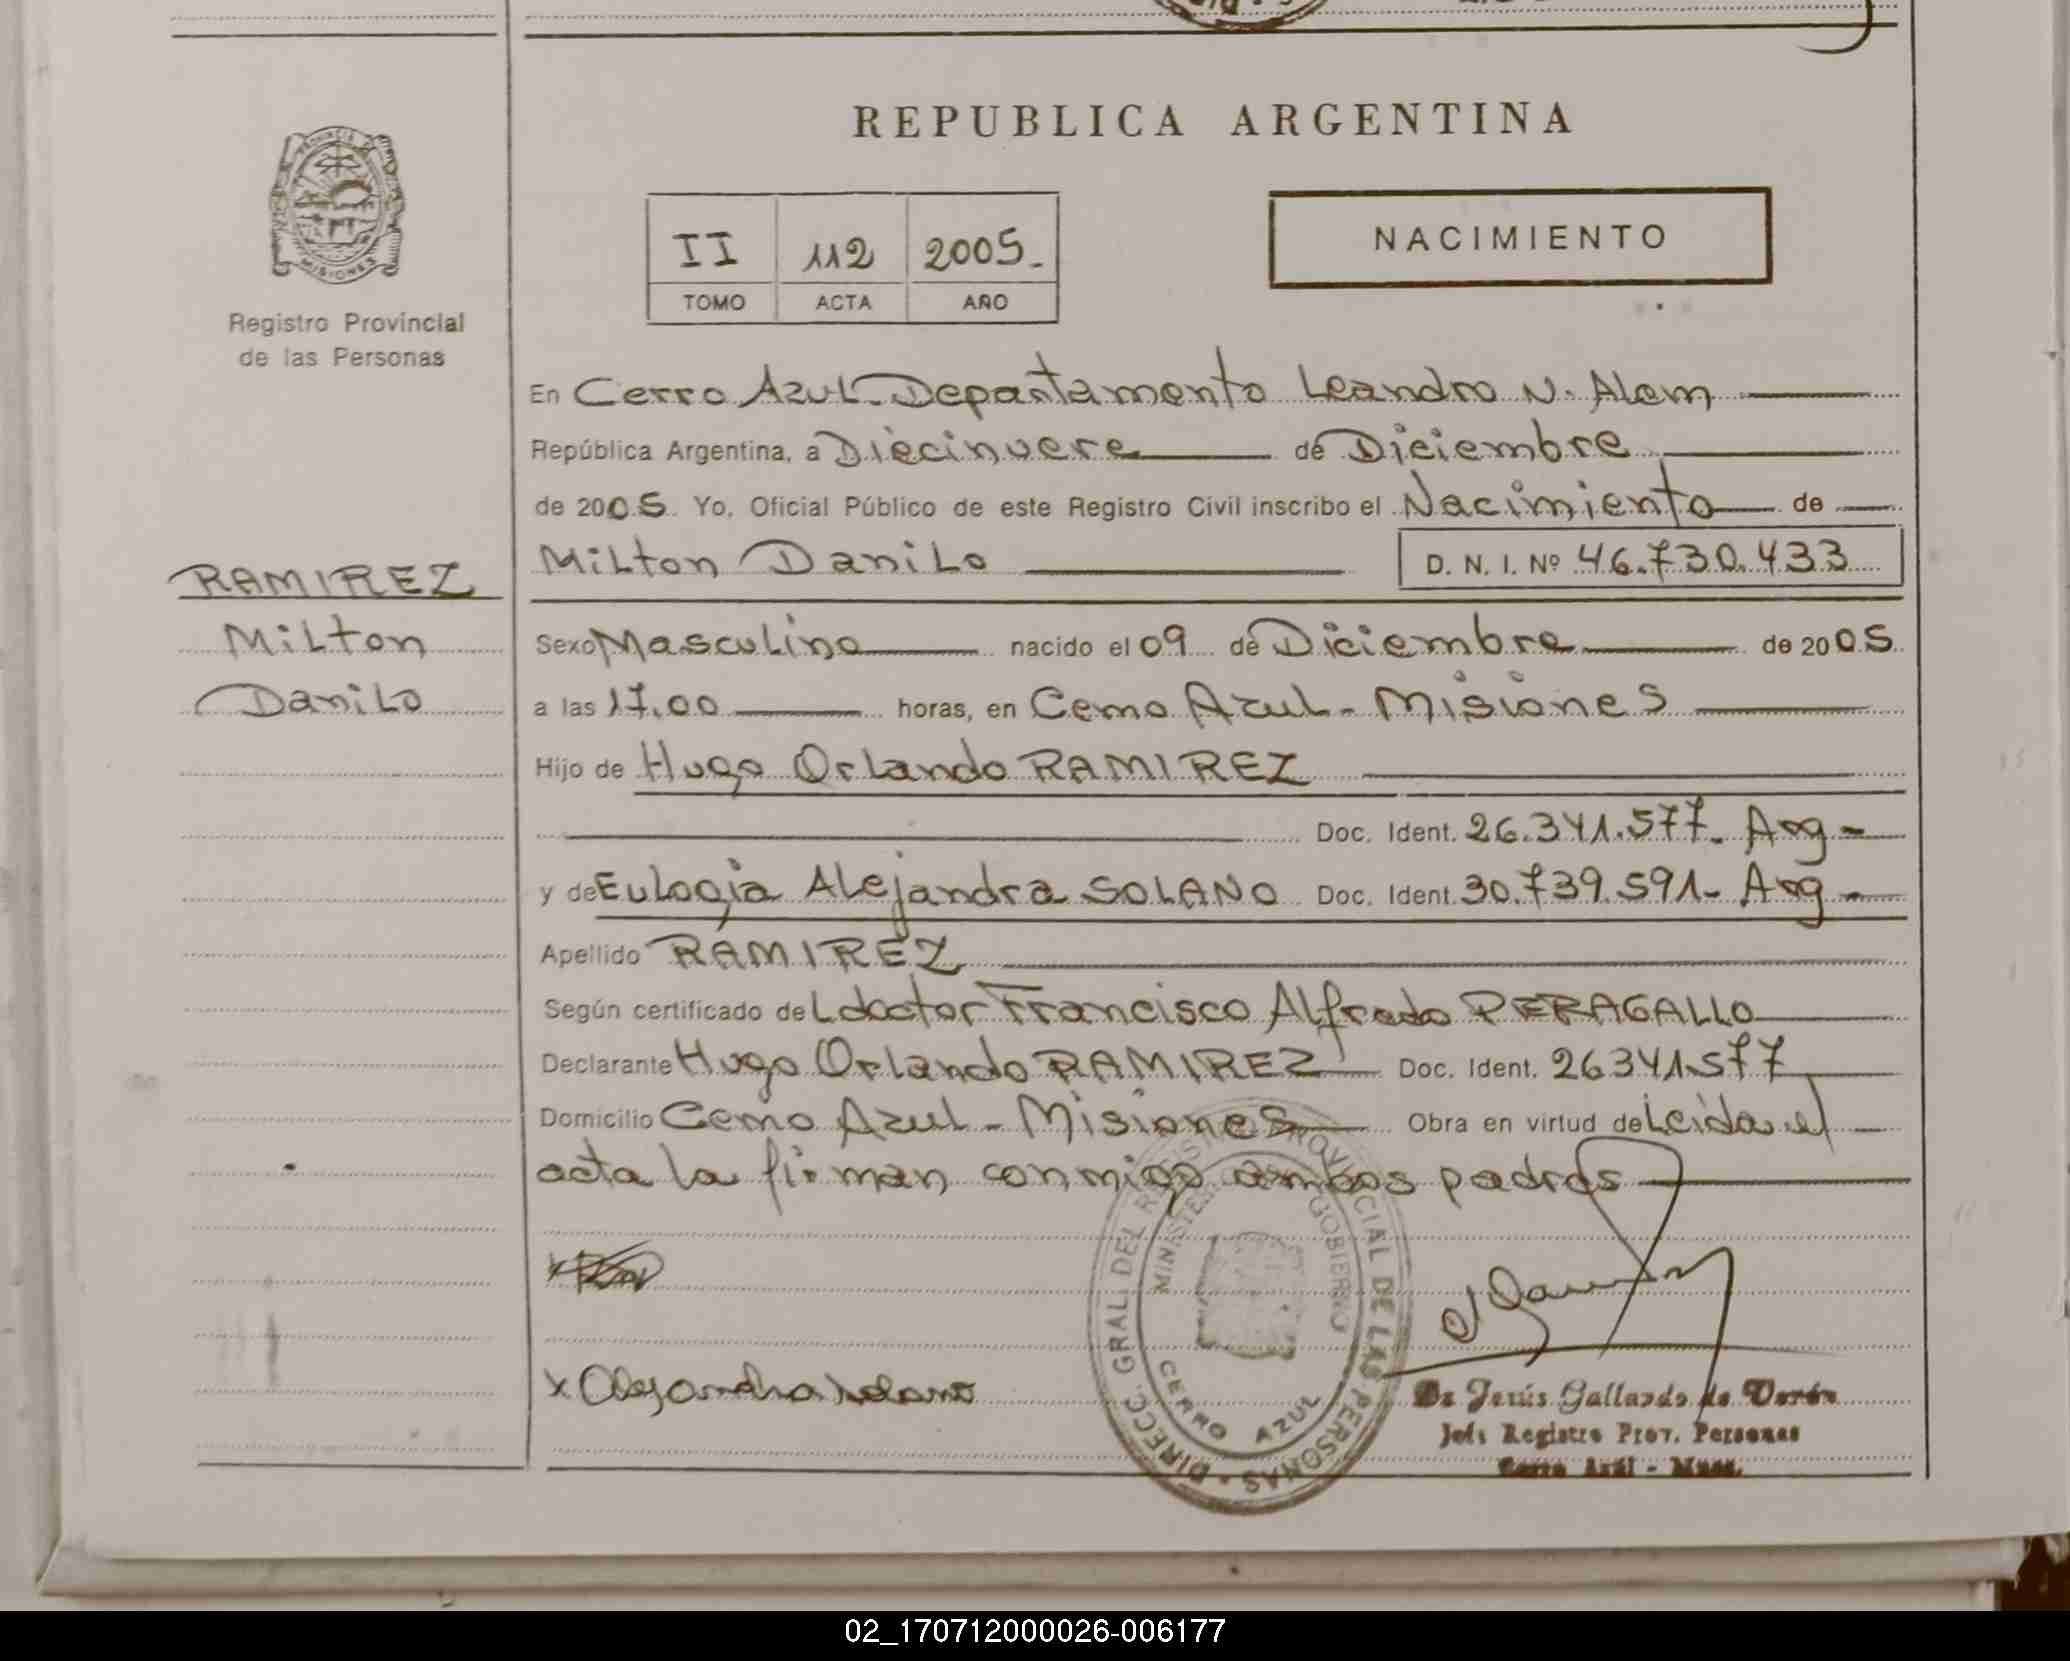 REPUBLICA ARGENTINA
PROVINCIA DE
MISIONES
Registro Provincial
de las Personas
II 112 2005.-
TOMO ACTA AÑO
NACIMIENTO
En Cerro Azul - Departamento Leandro N. Alem
República Argentina, a Diecinueve de Diciembre
de 2005 Yo, Oficial Público de este Registro Civil inscribo el Nacimiento de
Milton Danilo D. N. I. Nº 46.730.433
RAMIREZ
Milton
Danilo
Sexo Masculino nacido el 09 de Diciembre de 2005
a las 17,00 horas, en Cerro Azul - Misiones
Hijo de Hugo Orlando RAMIREZ
Doc. Ident. 26.341.577- Arg-
y de Eulogia Alejandra SOLANO Doc. Ident. 30.739.591- Arg-
Apellido RAMIREZ
Según certificado del doctor Francisco Alfredo PERAGALLO
Declarante Hugo Orlando RAMIREZ Doc. Ident. 26341.577
Domicilio Cerro Azul - Misiones Obra en virtud de Leida el
acta la firman conmigo ambos padres
x Alejandra Solano
DIRECC. GRAL DEL REGISTRO PROVINCIAL DE LAS PERSONAS
MINISTERIO GOBIERNO
CERRO AZUL
Jesús Gallardo de Verón
Jefe Registro Prov. Personas
Cerro Azul - Mnes.
02_170712000026-006177